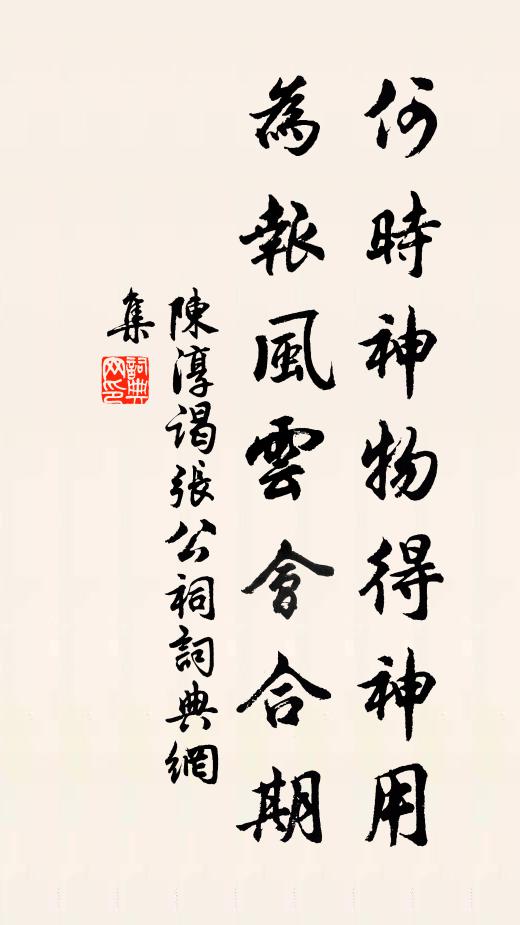 何時神物得神用
為報風雲會合期
陳淳謁張公祠詞典網
集
詞典
网印